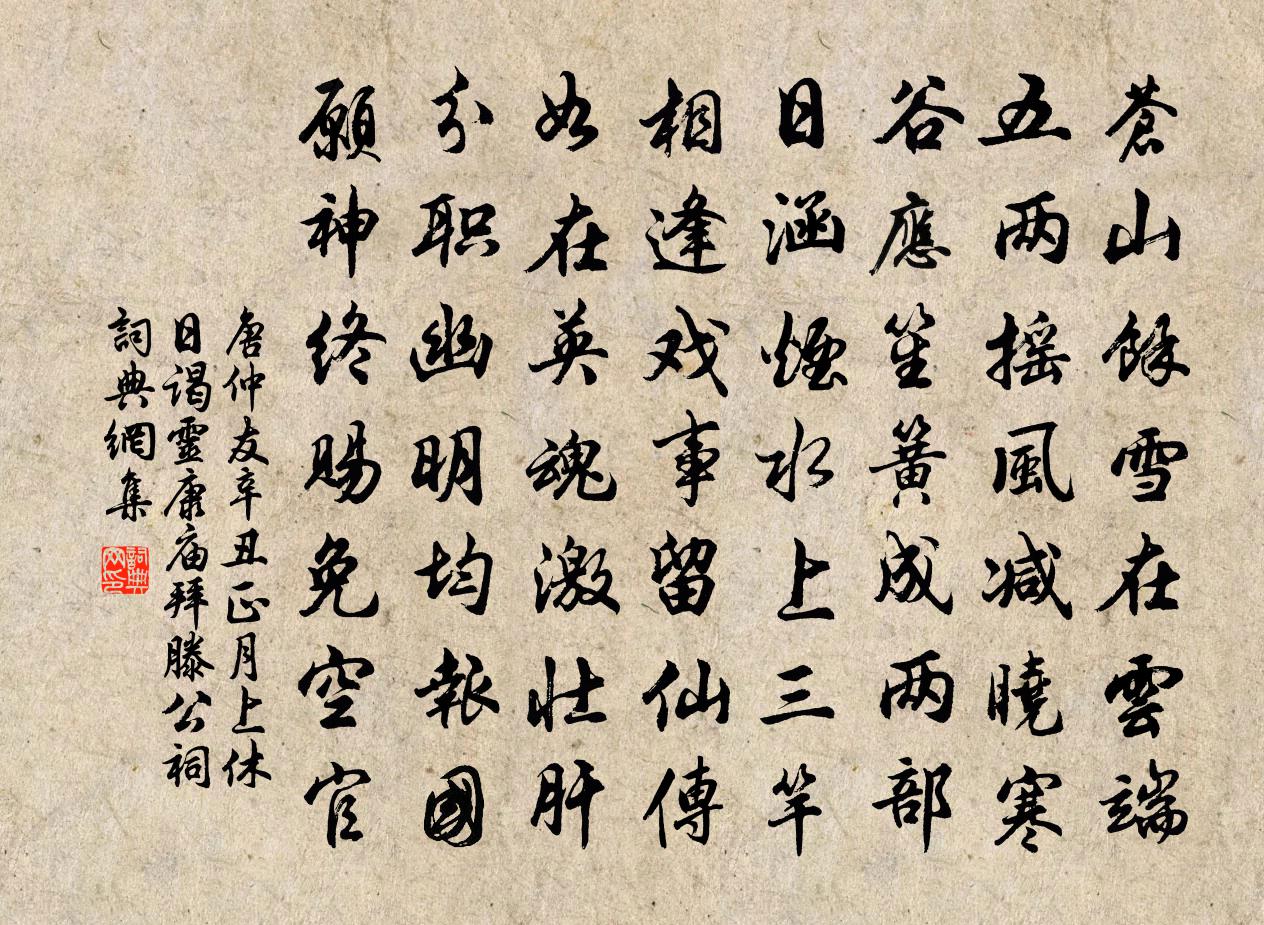 蒼山餘雪在雲端
五两摇風减曉寒
谷應笙簧成两部
日涵煙水上三竿
相逢戏事留仙傳
如在英魂激壮肝
分职幽明均報國
願神终赐免空官
唐仲友辛丑正月上休
日谒靈康庙拜滕公祠
詞典網集
詞典网印